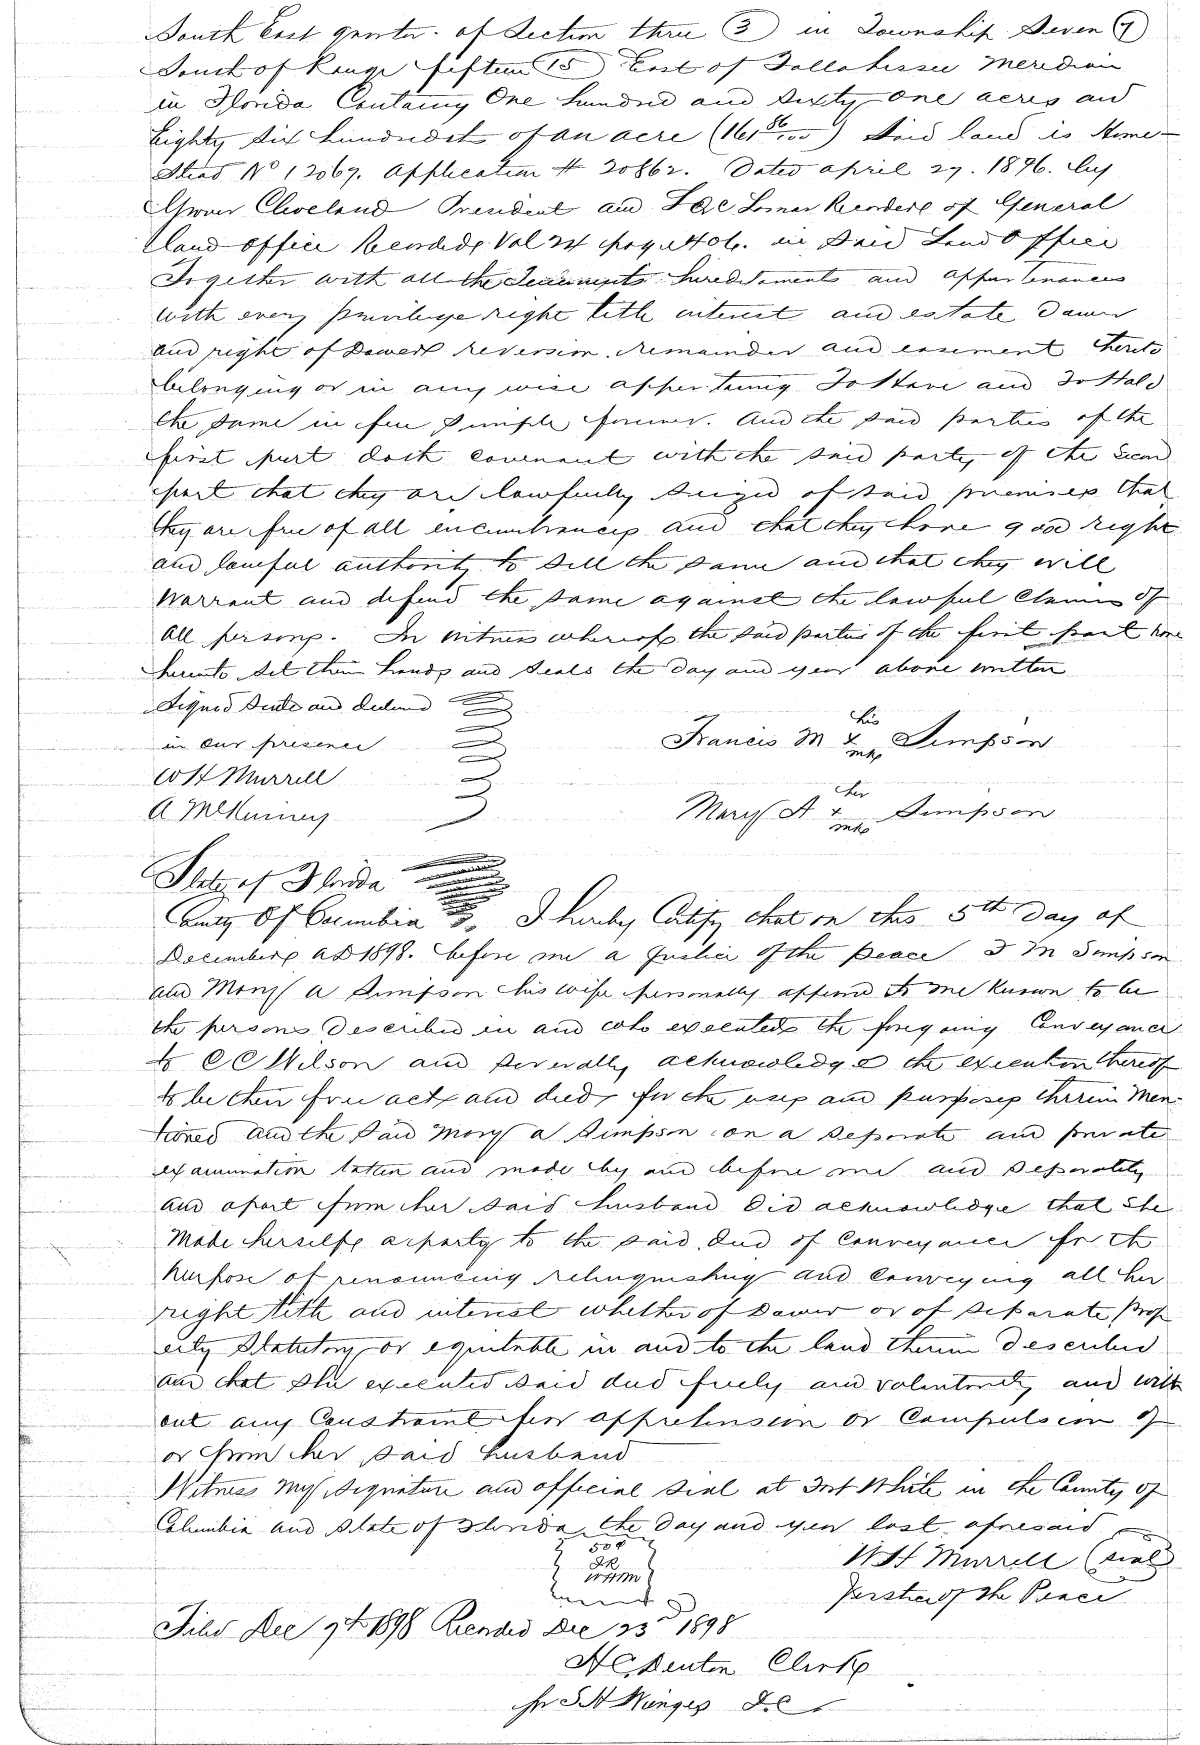 South East quarter of Section three (3) in Township Seven (7)
South of Range fifteen (15) East of Tallahassee Meridian
in Florida Containg One hundred and Sixty One acres and
Eighty Six hundredth of an acre (161 86/100) Said land is Home-
stead No 12069. Application # 20862. Dated April 27. 1896. by
Grover Cleveland President and Recorders of General
land office Recorded Vol 24 page 406. in Said Land Office
Together with all the Tenements hereditaments and appurtenances
with every privilege right title interest and estate Dower
and right of Dower reversion. remainder and easement thereto
belonging or in any wise appertaining To Have and To Hold
the same in fee simple forever. And the said parties of the
first part doth covenant with the said party of the Second
part that they are lawfully Seized of said premises that
they are free of all encumbrances and that they have good right
and lawful authority to sell the same and that they will
Warrant and defend the same against the lawful Claims of
all persons. In witness whereof the said parties of the first part have
hereunto set their hands and seals the day and year above written
Signed Seald and delivered
in our presence
his
Francis M x Simpson
mk
W H Murrell
A McKinney
her
Mary A x Simpson
mk
State of Florida
County Of Columbia I hereby Certify that on this 5th Day of
December AD 1898. before me a Justice of the Peace F M Simpson
and Mary A Simpson his wife personally appeared to me known to be
the persons Described in and who executed the foregoing Conveyance
to C C Wilson and severally acknowledge the execution thereof
to be their free act and deed, for the uses and purposes therein Men-
tioned and the said Mary A Simpson on a Separate and private
examination taken and made by and before me and Separately
and apart from her said husband Did acknowledge that She
Made herself a party to the said Deed of Conveyance for th
Purpose of renouncing relinquishing and Conveying all her
right title and interest whether of Dower or of Separate Prop
erty Statutory or equitable in and to the land therein described
and that she executed said deed freely and voluntarily and with
out any Constraint fear apprehension or Compulsion of
or from her said husband
Witness my Signature and official Seal at Fort White in the County of
Columbia and State of Florida, the Day and year last aforesaid
50¢
W H Murrell (Seal)
WHM
Justice of the Peace
Filed Dec 9th 1898 Recorded Dec 23rd 1898
Clerk
D.C.